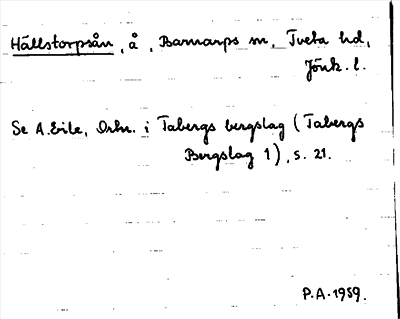 Hällstorpsån, å, Barnarps sn, Tveta hd,
Jönk. l.
Se A. Eile, Ortn. i Tabergs bergslag (Tabergs
Bergslag 1), s. 21.
P.A. 1959.